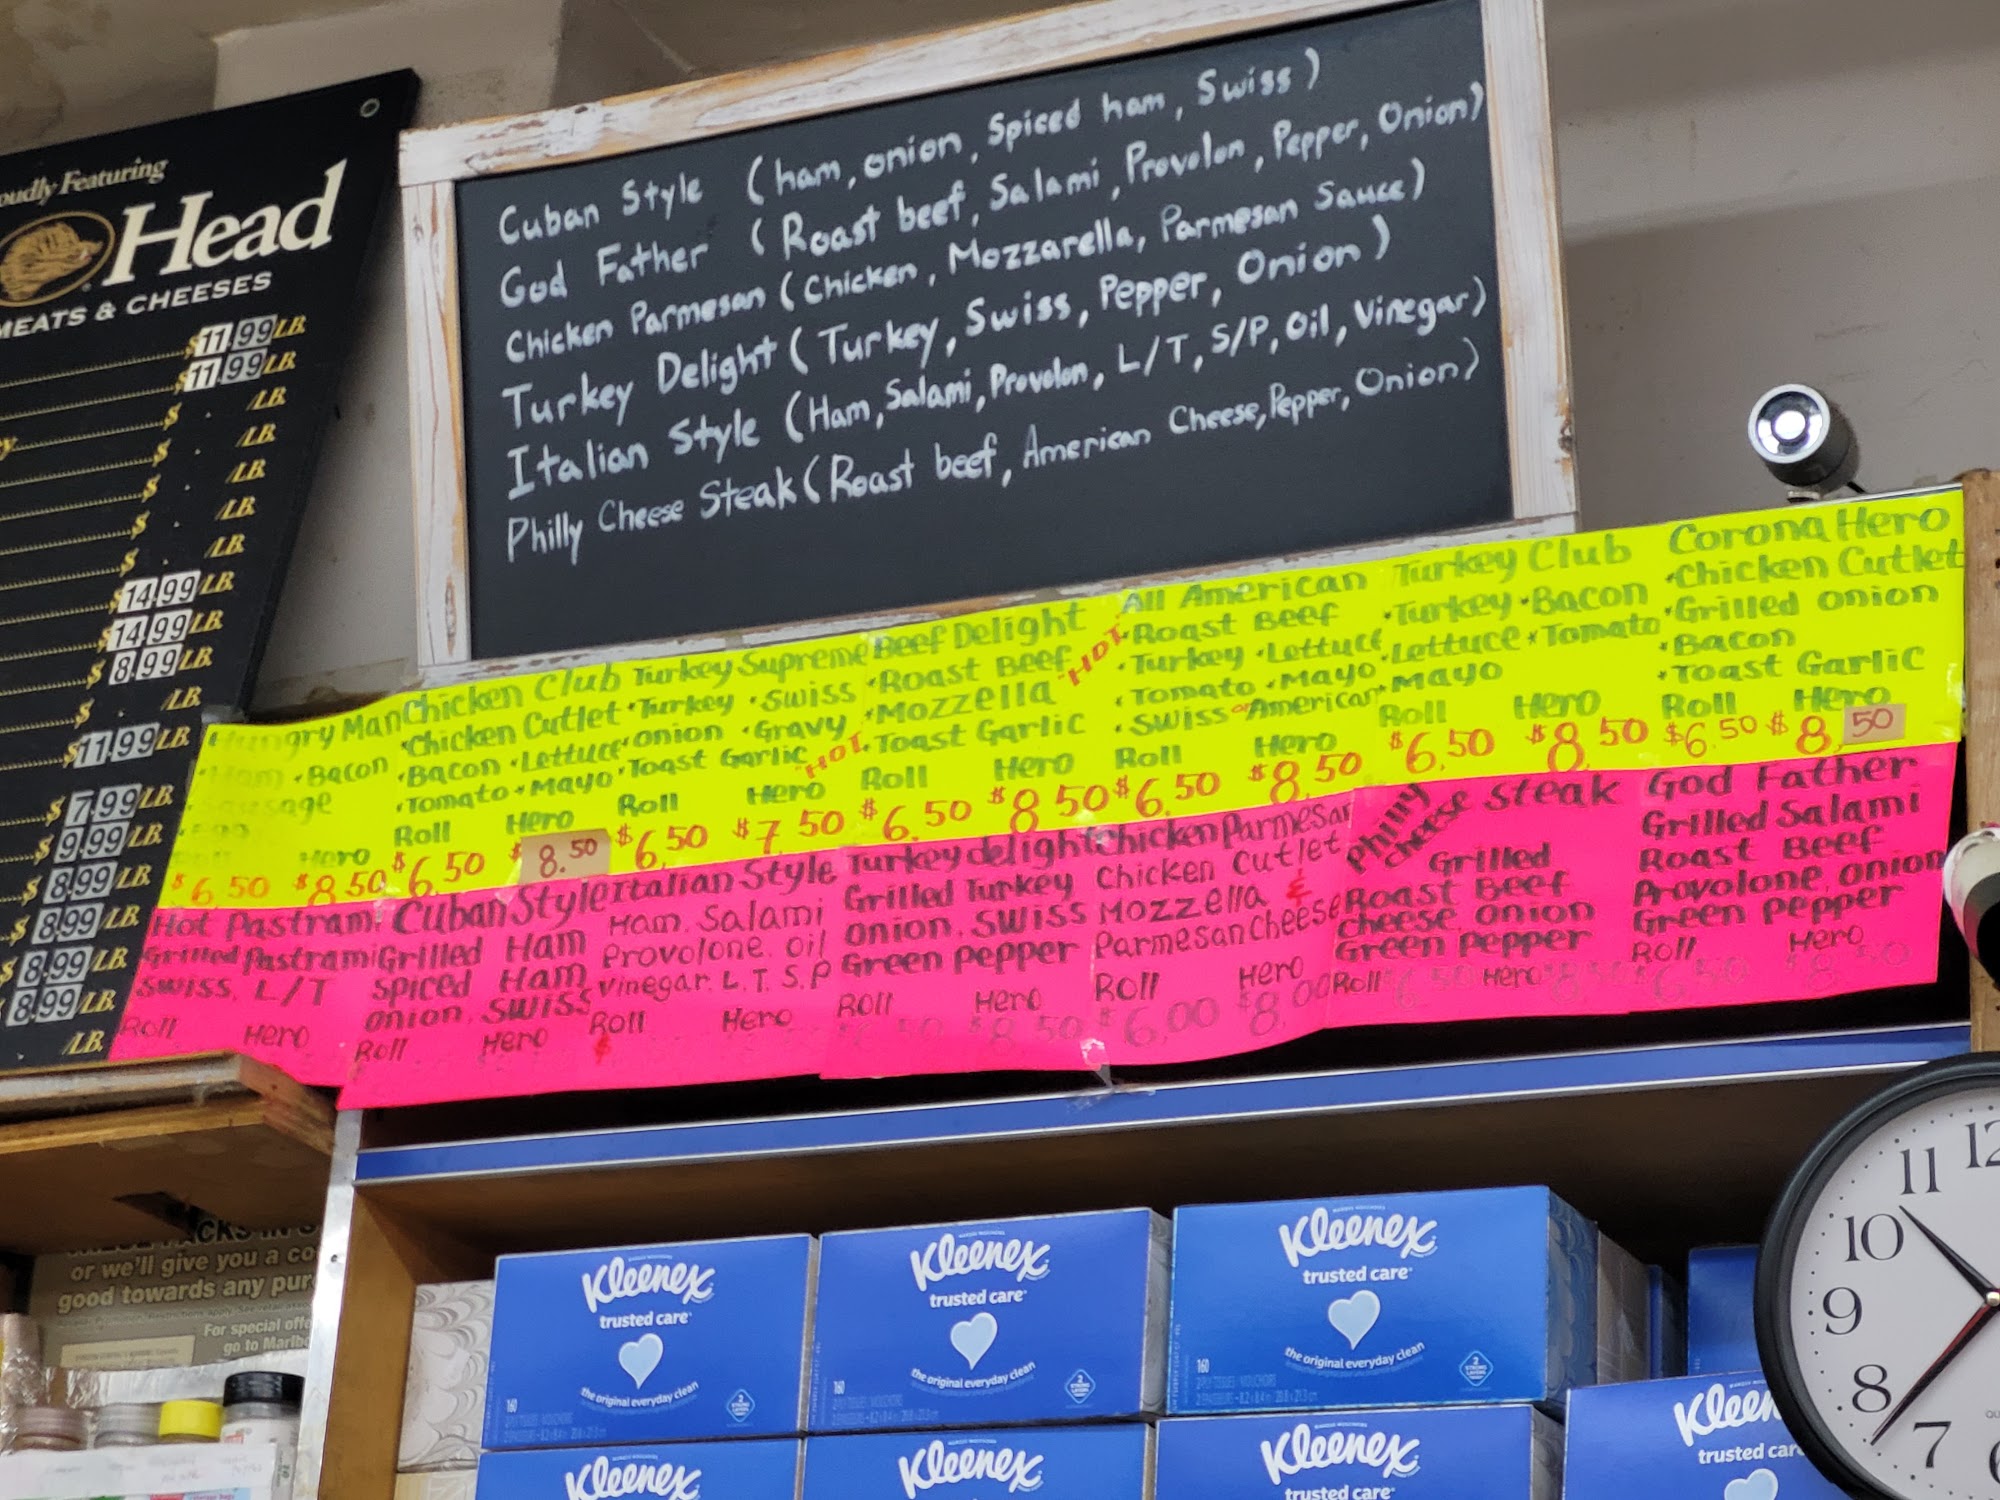 oudly Featuring
Head
MEATS & CHEESES
$11.99/LB.
$11.99/LB.
$ . /LB.
$ . /LB.
$ . /LB.
$ . /LB.
$ . /LB.
$14.99/LB.
$14.99/LB.
$8.99/LB.
$ . /LB.
$11.99/LB.
$7.99/LB.
$9.99/LB.
$8.99/LB.
$8.99/LB.
$8.99/LB.
8.99/LB.
/LB.
Cuban Style (ham, onion, Spiced ham, Swiss)
God Father (Roast beef, Salami, Provolon, Pepper, Onion)
Chicken Parmesan (Chicken, Mozzarella, Parmesan Sauce)
Turkey Delight (Turkey, Swiss, Pepper, Onion)
Italian Style (Ham, Salami, Provolon, L/T, S/P, Oil, Vinegar)
Philly Cheese Steak (Roast beef, American Cheese, Pepper, Onion)
Hungry Man
·Ham ·Bacon
·Sausage
·Egg
Roll Hero
$6.50 $8.50
Chicken Club
·Chicken Cutlet
·Bacon ·Lettuce
·Tomato ·Mayo
Roll Hero
$6.50 $8.50
Turkey Supreme
·Turkey ·Swiss
·Onion ·Gravy
·Toast Garlic
HOT
Roll Hero
$6.50 $7.50
Beef Delight
·Roast Beef
·Mozzella
·Toast Garlic
HOT
Roll Hero
$6.50 $8.50
All American
·Roast Beef
·Turkey ·Lettuce
·Tomato ·Mayo
·Swiss or American
Roll Hero
$6.50 $8.50
Turkey Club
·Turkey ·Bacon
·Lettuce ·Tomato
·Mayo
Roll Hero
$6.50 $8.50
Corona Hero
·Chicken Cutlet
·Grilled Onion
·Bacon
·Toast Garlic
Roll Hero
$6.50 $8.50
Hot Pastrami
Grilled Pastrami
Swiss, L/T
Roll Hero
Cuban Style
Grilled Ham
Spiced Ham
Onion, Swiss
Roll Hero
Italian Style
Ham, Salami
Provolone, Oil
Vinegar, L.T, S.P
Roll Hero
$
Turkey delight
Grilled Turkey
Onion, Swiss
Green Pepper
Roll Hero
$6.50 $8.50
Chicken Parmesan
Chicken Cutlet
Mozzella &
Parmesan Cheese
Roll Hero
$6.00 $8.00
Philly Cheese Steak
Grilled
Roast Beef
Cheese Onion
Green Pepper
Roll $6.50 Hero $8.50
God Father
Grilled Salami
Roast Beef
Provolone, Onion
Green Pepper
Roll Hero
$6.50 $8.50
or we'll give you a co
good towards any pur
For special offe
go to Marlbo
Kleenex
trusted care
the original everyday clean
160
Kleenex
trusted care
the original everyday clean
160
Kleenex
trusted care
the original everyday clean
160
Kleenex
Kleenex
Kleenex
trusted care
Kleen
trusted car
12
11
10
9
8
7
6